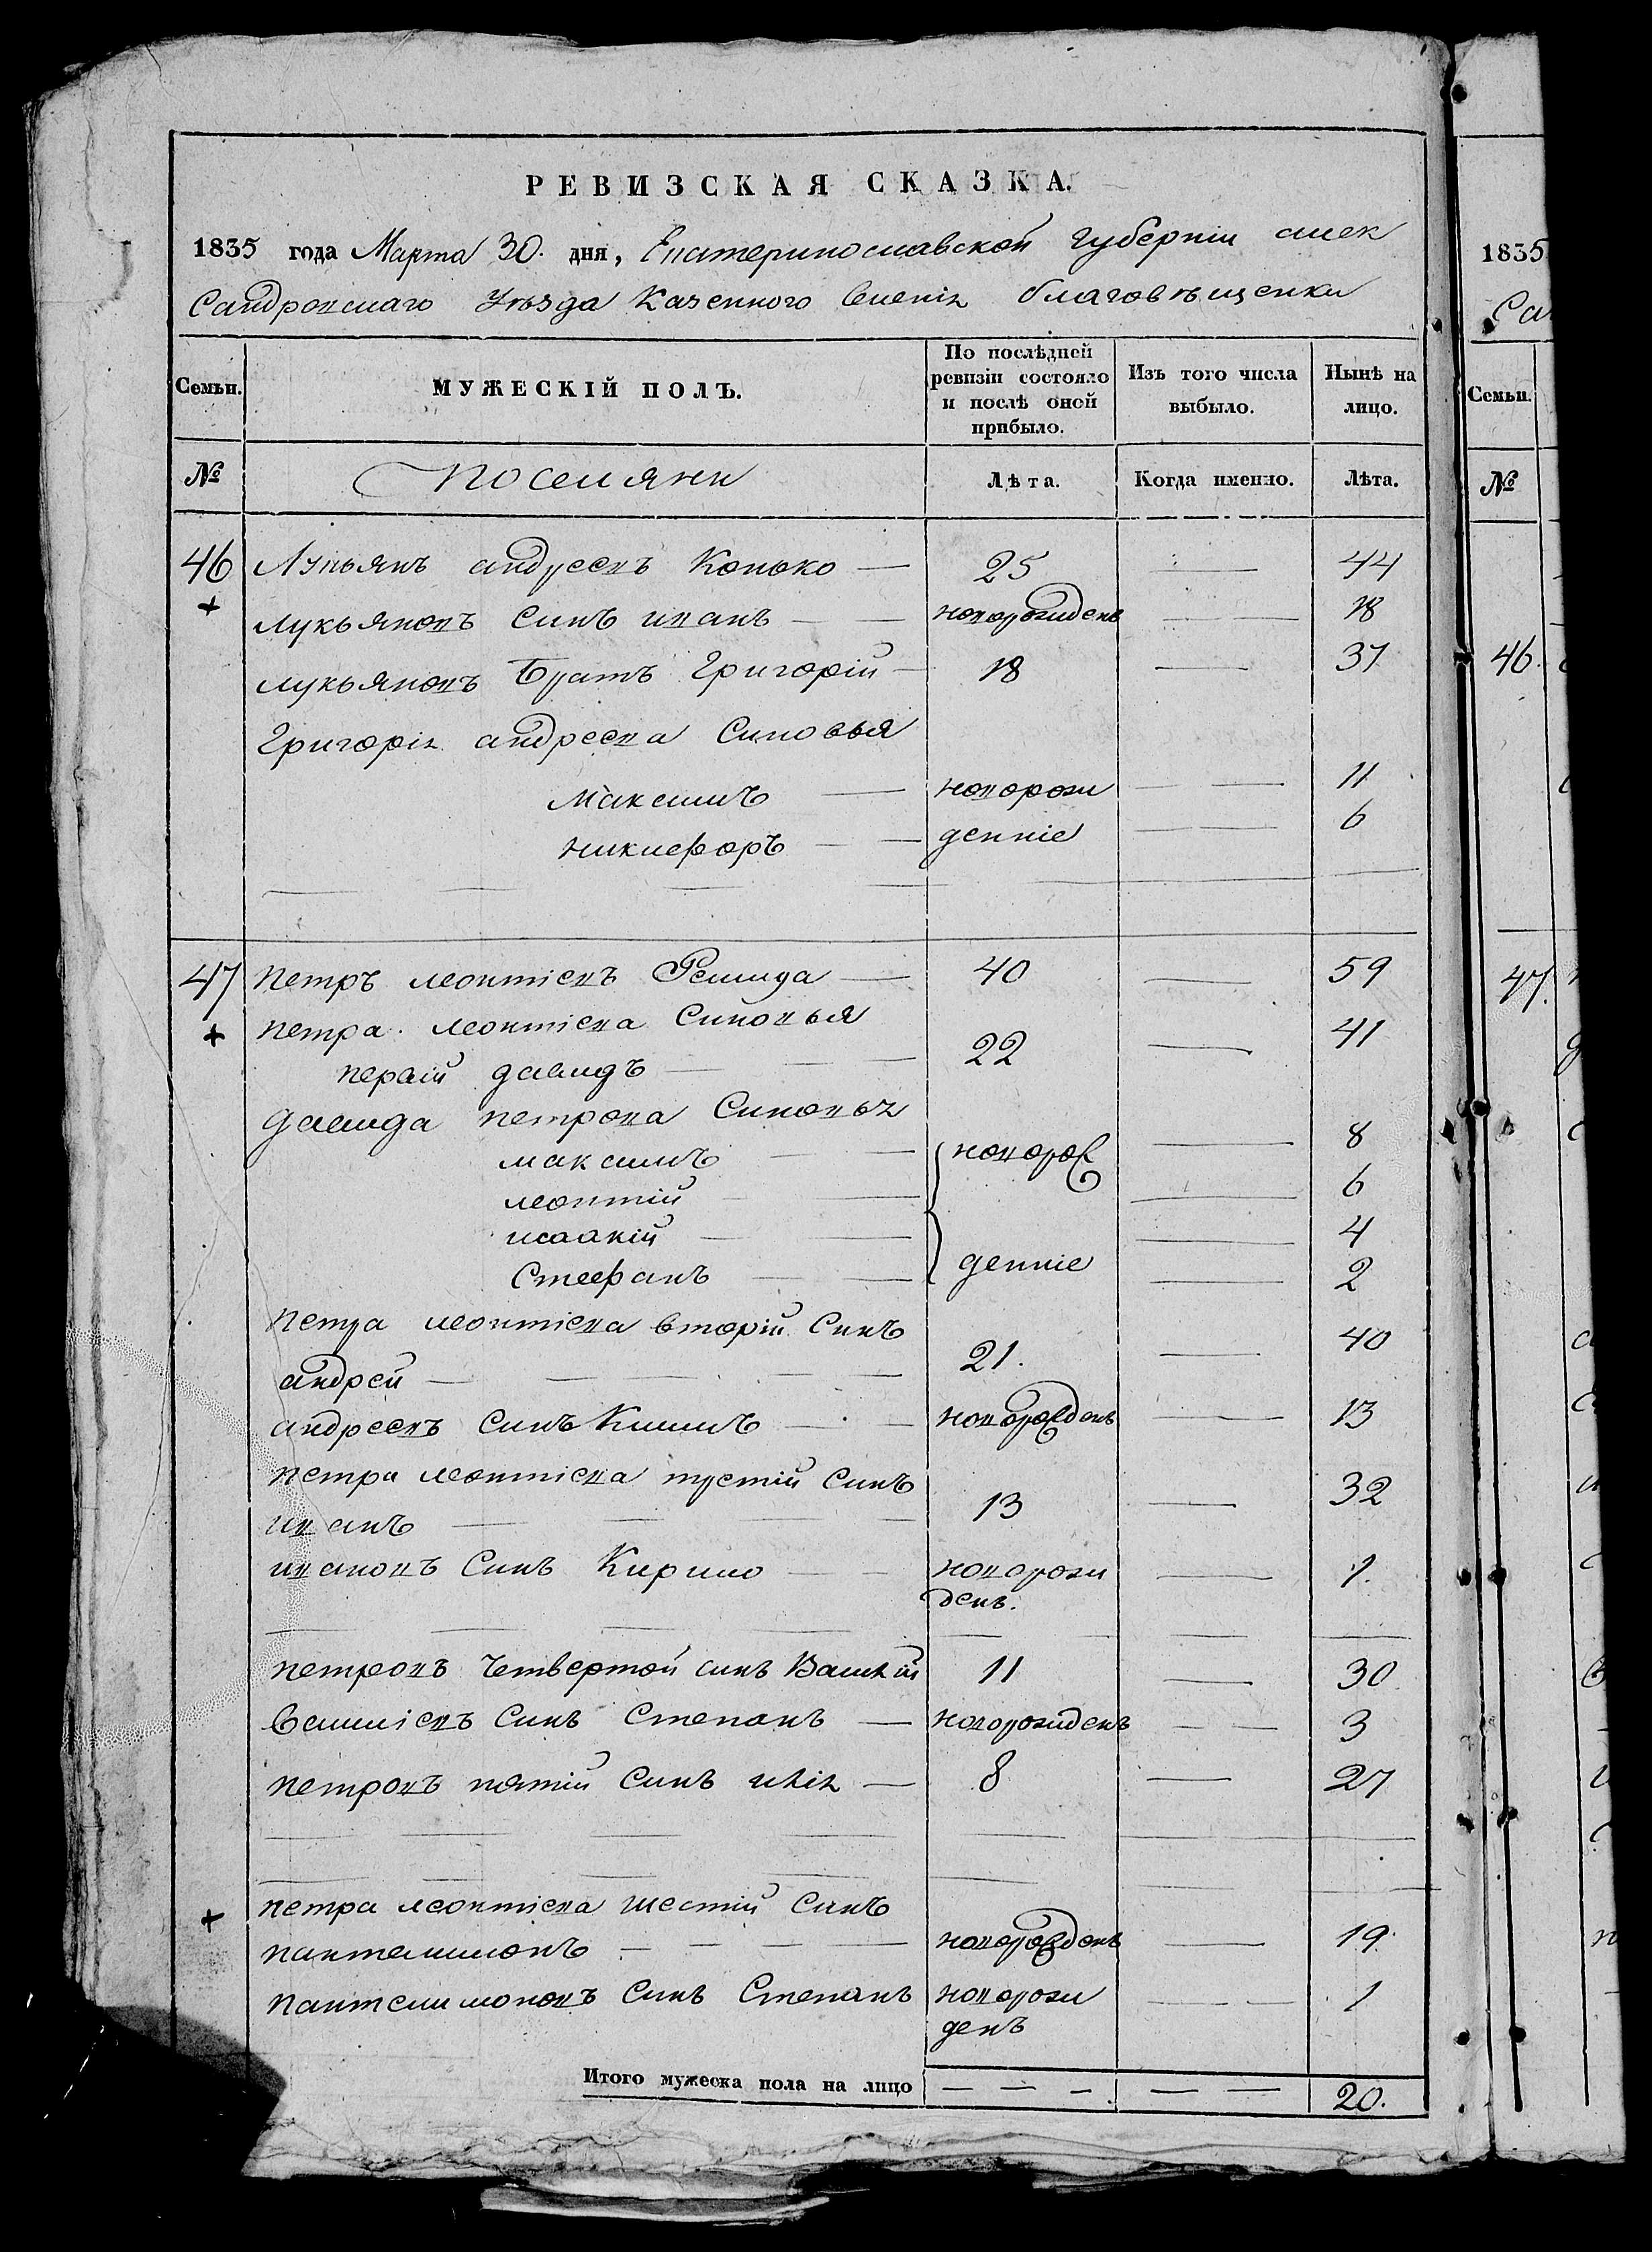 РЕВИЗСКАЯ СКАЗКА.
1835 года Марта 30. дня, Екатеринославской губерніи алек
сандровскаго уѣзда казенного селенія благовѣщенки
Семьи.
МУЖЕСКІЙ ПОЛЪ.
По послѣдней ревизіи состояло и послѣ оной прибыло.
Изъ того числа выбыло.
Нынѣ на лицо.
№ Поселяни Лѣта. Когда именно. Лѣта.
46 Лукьянъ андреевъ Коноко — 25 — 44
+ лукьяновъ синъ иванъ — новорожденъ — 18
лукьяновъ братъ Григорій — 18 — 37
Григорія андреева Синовья
Максимъ — новорож — 11
никифоръ — денніе — 6
47 петръ леонтіевъ — 40 — 59
+ петра леонтіева Синовья
первій давидъ — 22 — 41
давида петрова Синовья
максимъ — новорож — 8
леонтій — 6
исаакій — 4
Стефанъ — денніе — 2
петра леонтіева вторій Синъ
андрей — 21. — 40
андреевъ Синъ Климъ — новорожденъ — 13
петра леонтіева третій Синъ
иванъ — 13 — 32
ивановъ Синъ Кирило — новорож — 1.
денъ.
петровъ четвертой синъ Василій 11 — 30
Василіевъ Синъ Степанъ — новорожденъ — 3
петровъ пятій Синъ илія — 8 — 27
+ петра леонтіева шестій Синъ
пантелимонъ — новорожденъ — 19.
пантелимоновъ Синъ Степанъ новорож — 1
денъ
Итого мужеска пола на лицо — — — — — 20.
1835
Са
Семьи.
№
46.
47.